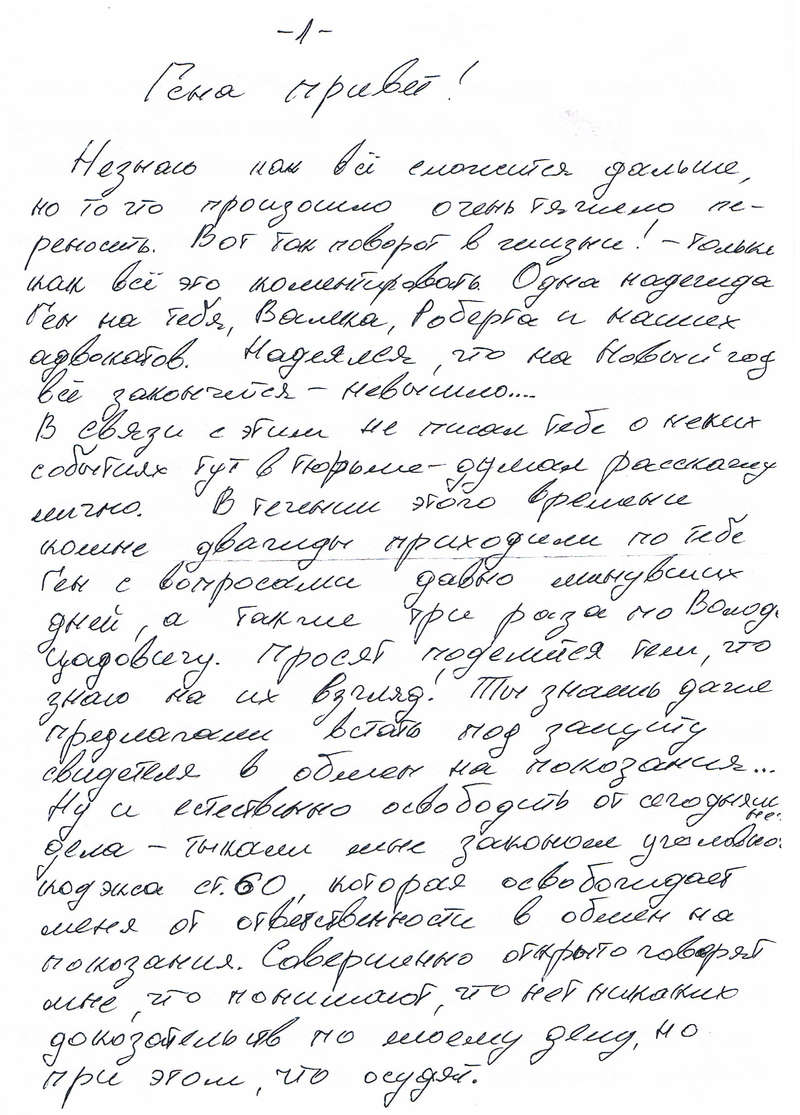 -1-
Гена привет!
Незнаю как всё сложится дальше,
но то что произошло очень тяжело пе-
реносить. Вот так поворот в жизни! - только
как всё это коментировать. Одна надежда
Ген на тебя, Валека, Роберта и наших
адвокатов. Надеялся, что на Новый год
всё закончится - невышло....
В связи с этим не писал тебе о неких
событиях тут в тюрьме - думал расскажу
лично. В течении этого времени
комне дважды приходили по тебе
Ген с вопросами давно минувших
дней, а также три раза по Володе
Просят поделится тем, что
знаю на их взгляд. Ты знаешь даже
предлагали встать под защиту
свидетеля в обмен на показания...
Ну и естественно освободить от сегодняш
него
дела - тыкали мне законом уголовно
кодэкса ст.60, которая освобождает
меня от ответственности в обмен на
показания. Совершенно открыто говорят
мне, что понимают, что нет никаких
доказательств по моему делу, но
при этом, что осудят.